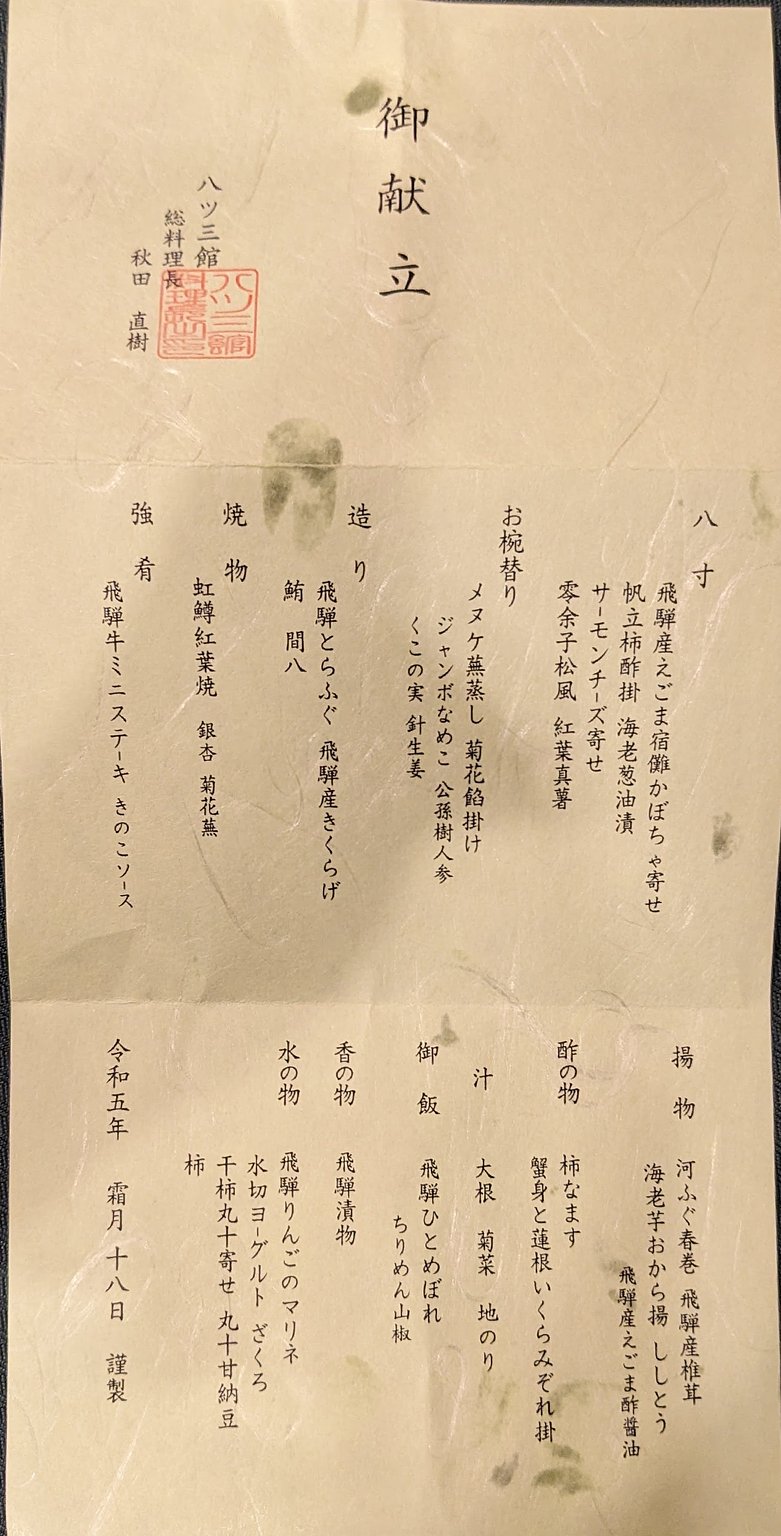 御献立
八ツ三館
総料理長
秋田 直樹
八寸
飛騨産えごま宿儺かぼちゃ寄せ
帆立柿酢掛 海老葱油漬
サーモンチーズ寄せ
零余子松風 紅葉真薯
お椀替り
メヌケ蕪蒸し 菊花餡掛け
ジャンボなめこ 公孫樹人参
くこの実 針生姜
造り
飛騨とらふぐ 飛騨産きくらげ
鮪 間八
焼物
虹鱒紅葉焼 銀杏 菊花蕪
強肴
飛騨牛ミニステーキ きのこソース
揚物
河ふぐ春巻 飛騨産椎茸
海老芋おから揚 ししとう
飛騨産えごま酢醤油
酢の物
柿なます
蟹身と蓮根いくらみぞれ掛
汁
大根 菊菜 地のり
御飯
飛騨ひとめぼれ
ちりめん山椒
香の物
飛騨漬物
水の物
飛騨りんごのマリネ
水切ヨーグルト ざくろ
干柿丸十寄せ 丸十甘納豆
柿
令和五年 霜月 十八日 謹製